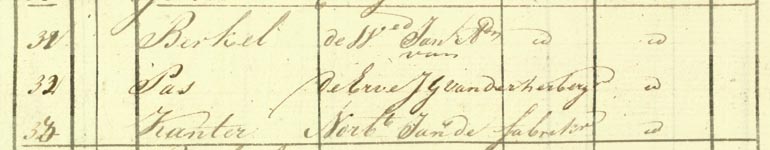 31 Berkel de Wed Jan van id id
32 Pas de Erve J G van der herberg id
33 Kanter Norbt Jan de fabriekr id